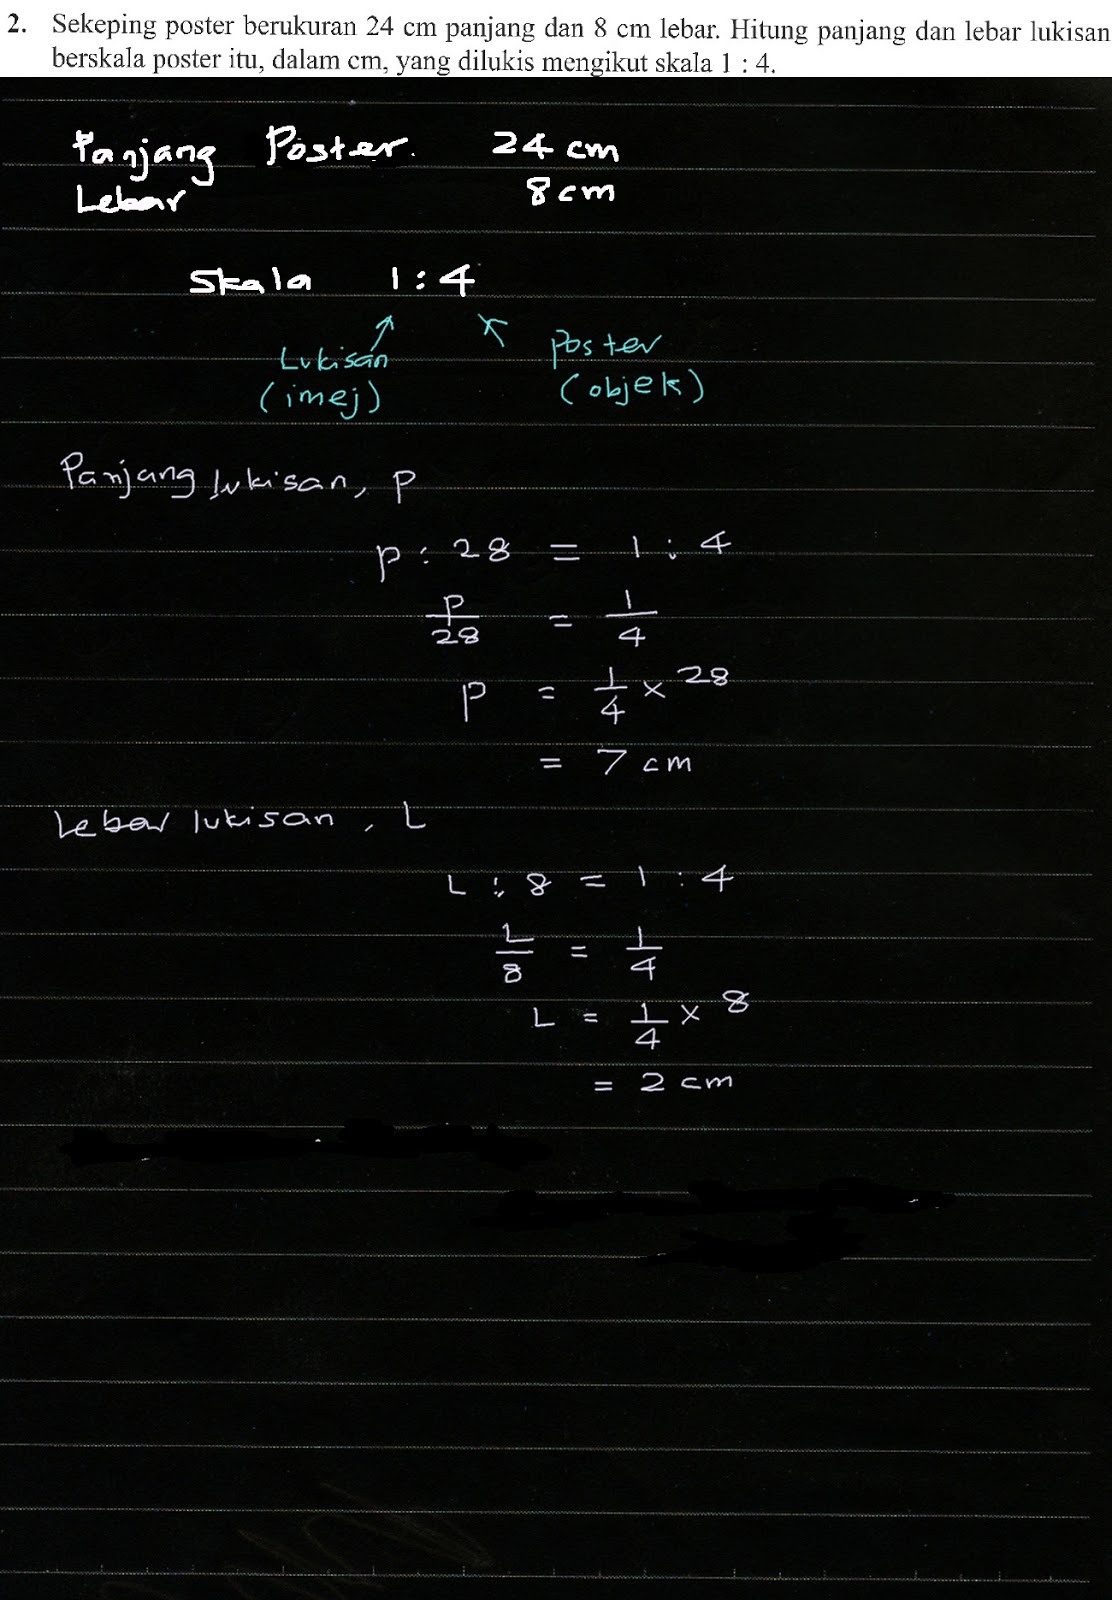 2. Sekeping poster berukuran 24 cm panjang dan 8 cm lebar. Hitung panjang dan lebar lukisan
berskala poster itu, dalam cm, yang dilukis mengikut skala 1 : 4.
Panjang Poster. 24 cm
Lebar 8 cm
Skala 1 : 4
Lukisan Poster
(imej) (objek)
Panjang lukisan, P
P : 28 = 1 : 4
P/28 = 1/4
P = 1/4 × 28
= 7 cm
Lebar lukisan, L
L : 8 = 1 : 4
L/8 = 1/4
L = 1/4 × 8
= 2 cm